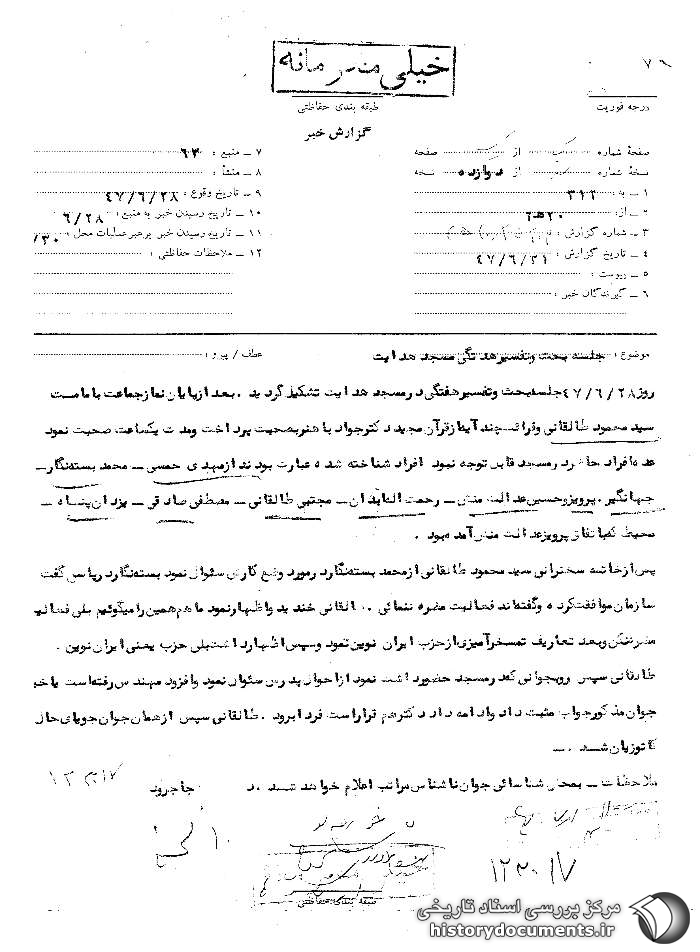 ۷۶
خیلی محرمانه
درجه فوریت
طبقه بندی حفاظتی
گزارش خبر
صفحهٔ شماره یک از یک صفحه
نسخهٔ شماره از دوازده نسخه
۱ ـ به: ۳۱۲
۲ ـ از: ۲۰ ه‍ ۲
۳ ـ شماره گزارش:
۴ ـ تاریخ گزارش: ۴۷/۶/۳۱
۵ ـ پیوست:
۶ ـ گیرندگان خبر:
۷ ـ منبع:
۸ ـ منشأ:
۹ ـ تاریخ وقوع: ۴۷/۶/۲۸
۱۰ ـ تاریخ رسیدن خبر به منبع: ۶/۲۸
۱۱ ـ تاریخ رسیدن خبر برهبر عملیات محل: /۳۰
۱۲ ـ ملاحظات حفاظتی:
موضوع: جلسه بحث وتفسیر هفتگی مسجد هدایت
عطف / پیرو:
روز ۴۷/۶/۲۸ جلسه بحث وتفسیر هفتگی در مسجد هدایت تشکیل گردید . بعد از پایان نماز جماعت با مامت
سید محمود طالقانی وقرائت چند آیه از قرآن مجید دکتر جواد با هنر بصحبت پرداخت ومدت یکساعت صحبت نمود
عده افراد حاضر در مسجد قابل توجه نمود افراد شناخته شده عبارت بودند از مهدی حمسی ـ محمد بسته نگار ـ
جهانگیر . پرویز وحسین عدالت منش ـ رحمت اله تابدان ـ مجتبی طالقانی ـ مصطفی صادقی ـ یزدان پناه ـ
محیط که باتفاق پرویز عدالت منش آمده بود .
پس از خاتمه سخنرانی سید محمود طالقانی از محمد بسته نگار در مورد وضع کارش سئوال نمود بسته نگار در پاسخ گفت
سازمان موافقت کرده وگفته اند فعالیت مضره ننمائی . طالقانی خندید واظهار نمود ما هم همین را میگوئیم ولی فعالیت
مضر نکن وبعد تعاریف تمسخر آمیزی از حزب ایران نوین نمود وسپس اظهار داشت بلی حزب یعنی ایران نوین .
طالقانی سپس روبجوانی که در مسجد حضور داشت نمود از احوال پدرش سئوال نمود وافزود مهندس رفته است یا خیر
جوان مذکور جواب مثبت داد وادامه داد دکتر هم قرار است فردا برود . طالقانی سپس از همان جوان جویای حال
کاتوزیان شد . ـ
ملاحظات ـ بمحض شناسائی جوان ناشناس مراتب اعلام خواهد شد . د
جاجرود
طبقه بندی حفاظتی
مرکز بررسی اسناد تاریخی
historydocuments.ir